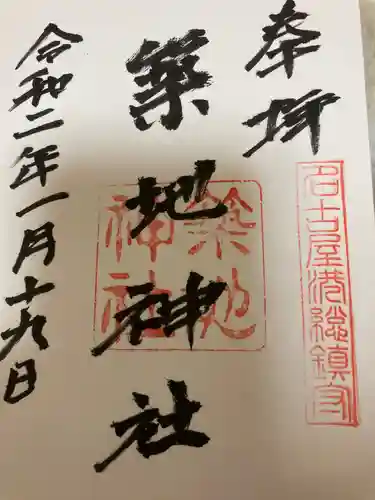 奉拝
名古屋港総鎮守
築地神社
築地神社
令和二年一月十九日